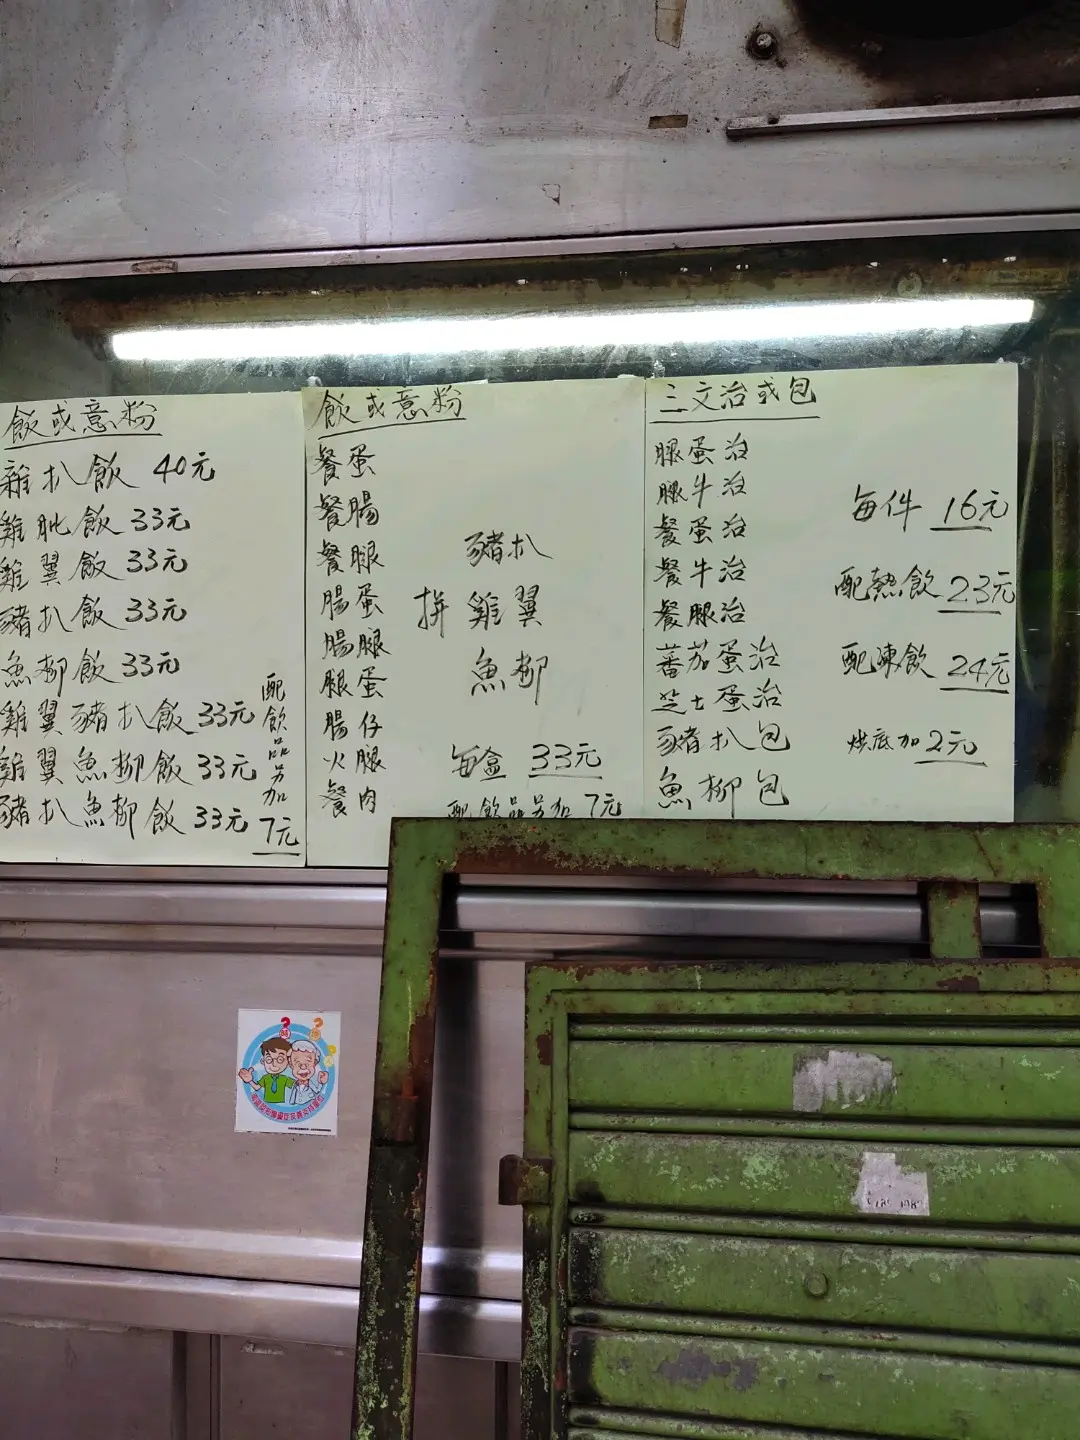 飯或意粉
雞扒飯 40元
雞肶飯 33元
雞翼飯 33元
豬扒飯 33元
魚柳飯 33元
雞翼豬扒飯 33元
雞翼魚柳飯 33元
豬扒魚柳飯 33元
配飲品另加
7元
飯或意粉
餐蛋
餐腸
餐腿
腸蛋
腸腿
腿蛋
腸仔
火腿
餐肉
豬扒
拼 雞翼
魚柳
每盒 33元
配飲品另加 7元
三文治或包
腿蛋治
腿牛治
餐蛋治
餐牛治
餐腿治
蕃茄蛋治
芝士蛋治
豬扒包
魚柳包
每件 16元
配熱飲 23元
配凍飲 24元
烘底加 2元